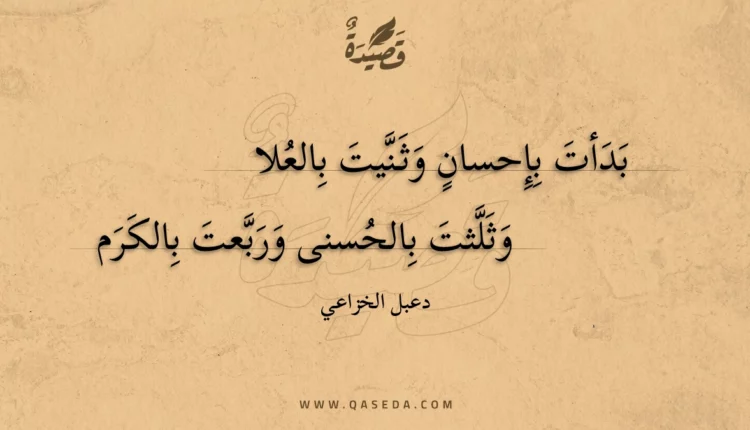 قَصِيْدَةٌ
بَدَأتَ بِإِحسانٍ وَثَنَّيتَ بِالعُلا
وَثَلَّثتَ بِالحُسنى وَرَبَّعتَ بِالكَرَم
دعبل الخزاعي
WWW.QASEDA.COM